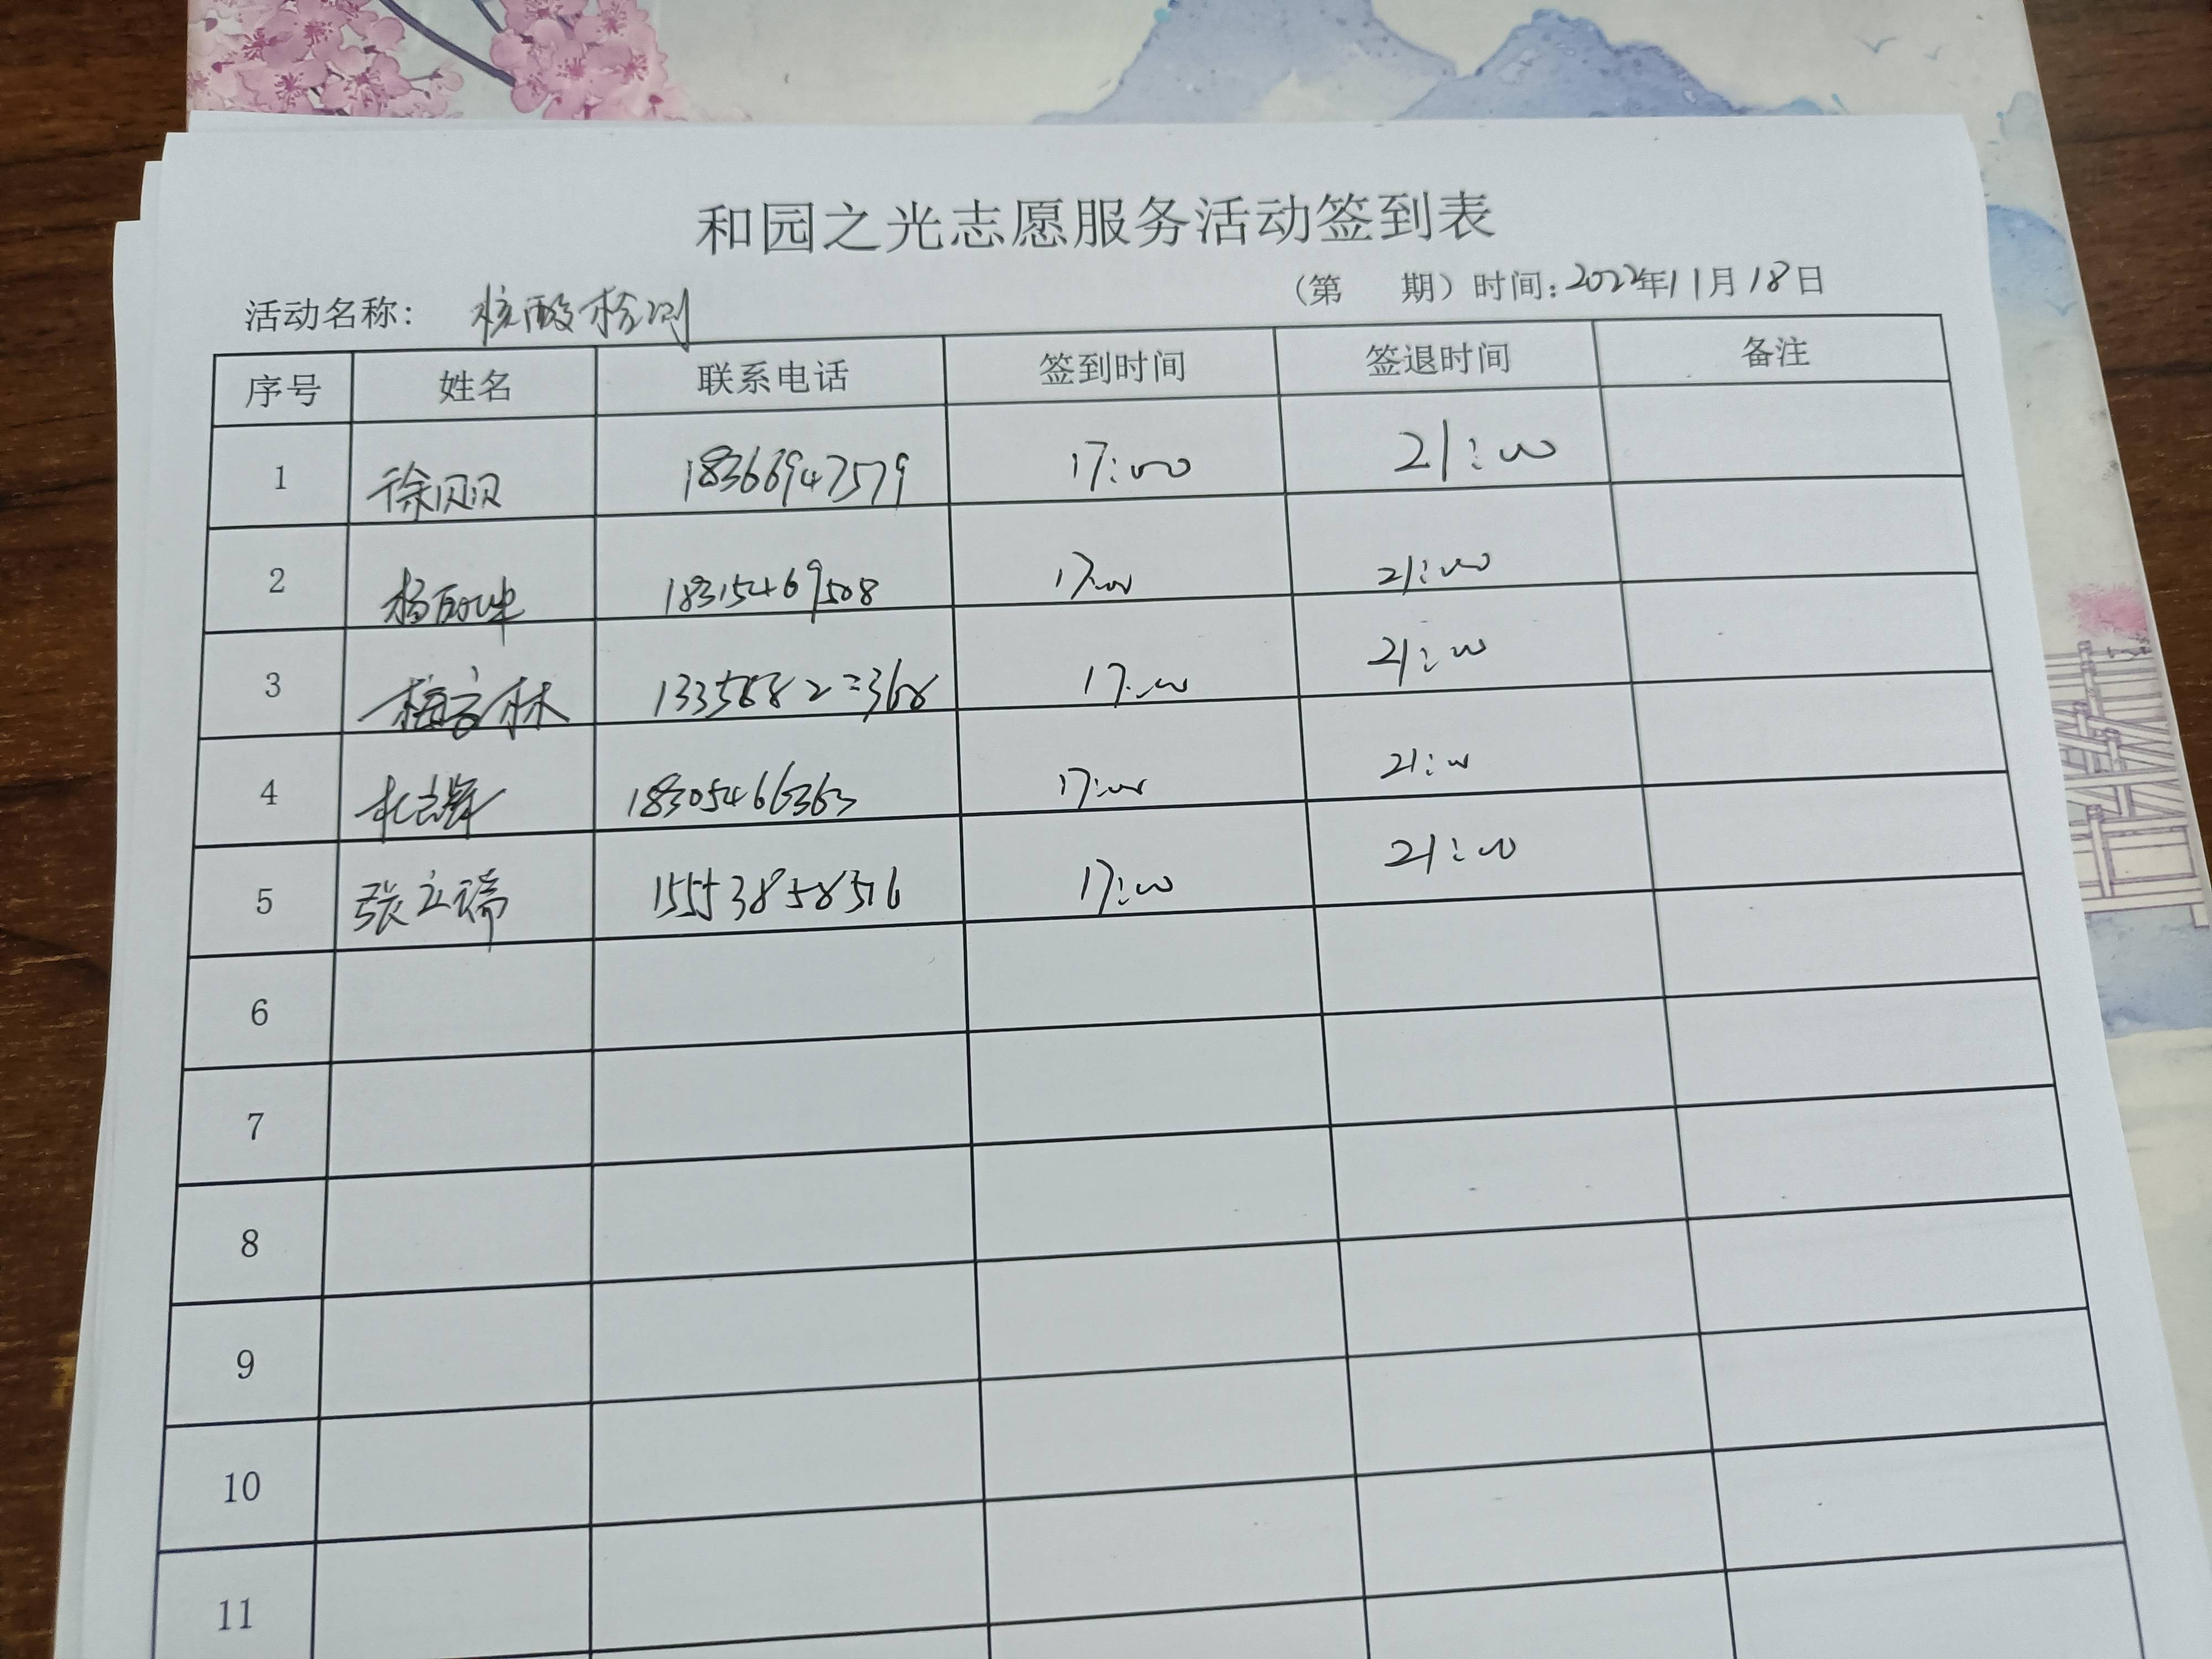 和园之光志愿服务活动签到表
活动名称： 核酸检测 （第 期）时间：2022年11月18日
序号 姓名 联系电话 签到时间 签退时间 备注
1 徐贝贝 18366947579 17:00 21:00
2 杨丽坤 18315469508 17:00 21:00
3 17:00 21:00
4 18305466363 17:00 21:00
5 张立瑞 15553858516 17:00 21:00
6
7
8
9
10
11